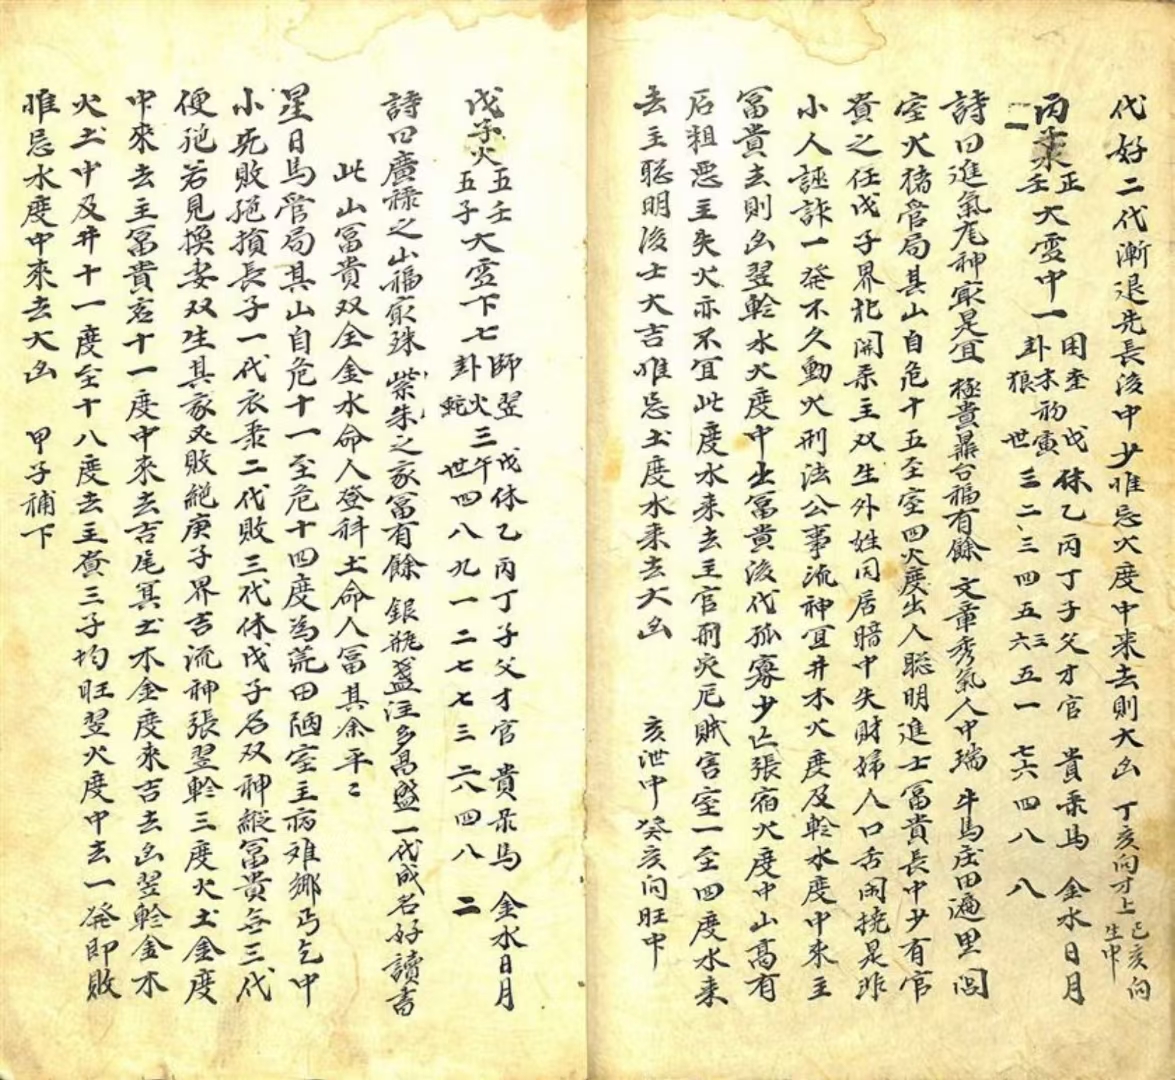 代好二代漸退先長後中少惟忌火度中来去則大凶 丁亥向才上 己亥向生中
丙子水 正壬 大雪中一 困卦 奎木狼 初寅 戊 世 休乙丙丁子父才官 貴彔馬 金水日月
二 三二三四五六三五一 七六四八八
詩曰進氣尨神家是宜 極貴鼎台福有餘 文章秀氣人中瑞 牛馬庄田遍里閭
室火猪管局其山自危十五至室四火度出人聪明進士冨貴長中少有官
貴之任戊子界犯開柔主双生外姓同居暗中失財婦人口舌閙撓是非
小人誣詐一発不久動火刑法公事流神宜井木火度及軫水度中來主
冨貴去則凶翌軫水火度中出冨貴後代孤寡少亡張宿火度中山高有
石粗恶主失火亦不宜此度水来去主官刑灾厄贼害室一至四度水来
去主聪明浚士大吉惟忌土度水来去大凶 亥泄中 癸亥向旺中
戊子火 五壬 五子 大雪下七 師卦 翌火蛇 三午 戊 世 休乙丙丁子父才官 貴彔馬 金水日月
四八九一二七七三 六四八 二
詩曰廣祿之山福家殊 紫朱之家冨有餘 銀瓶盞注多昌盛 一代成名好讀書
此山冨貴双全金水命人登科土命人冨其余平〻
星日馬管局其山自危十一至危十四度為荒田陋室主病难鄉丐乞中
小児敗絕損長子一代衣彔二代敗三代休戊子名双神縱冨貴無三代
便絕若見換妻双生其家灭敗絕庚子界吉流神張翌軫三度火土金度
中來去主冨貴危十一度中來去吉尾箕土木金度來吉去凶翌軫金木
火土中及井十一度至十八度去主貲三子均旺翌火度中去一発即敗
惟忌水度中來去大凶 甲子補下